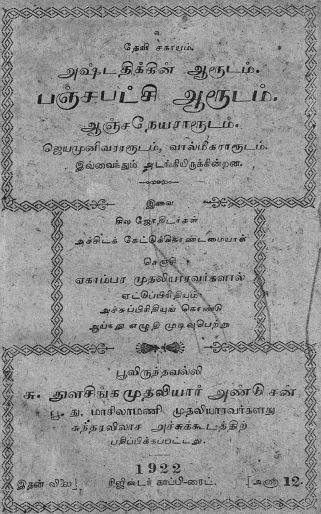 உ
தேவி சகாயம்.
அஷ்டதிக்கின் ஆரூடம்.
பஞ்சபட்சி ஆரூடம்.
ஆஞ்சநேயராரூடம்.
ஜெயமுனிவராரூடம், வால்மீகராரூடம்.
இவ்வைந்தும் அடங்கியிருக்கின்றன.
இவை
சில ஜோதிடர்கள்
அச்சிடக் கேட்டுக்கொண்டமையால்
செஞ்சி
ஏகாம்பர முதலியாரவர்களால்
ஏட்டுப்பிரதியும்
அச்சுப்பிரதியுங் கொண்டு
ஆய்ந்து எழுதி முடிவுபெற்று
பூவிருந்தவல்லி
சு. துளசிங்கமுதலியார் அண்டு சன்
பூ. து. மாசிலாமணி முதலியாரவர்களது
சுந்தரவிலாச அச்சுக்கூடத்திற்
பதிப்பிக்கப்பட்டது.
1922
இதன் விலை] ரிஜிஸ்டர் காப்பி-ரைட். [அணா 12.